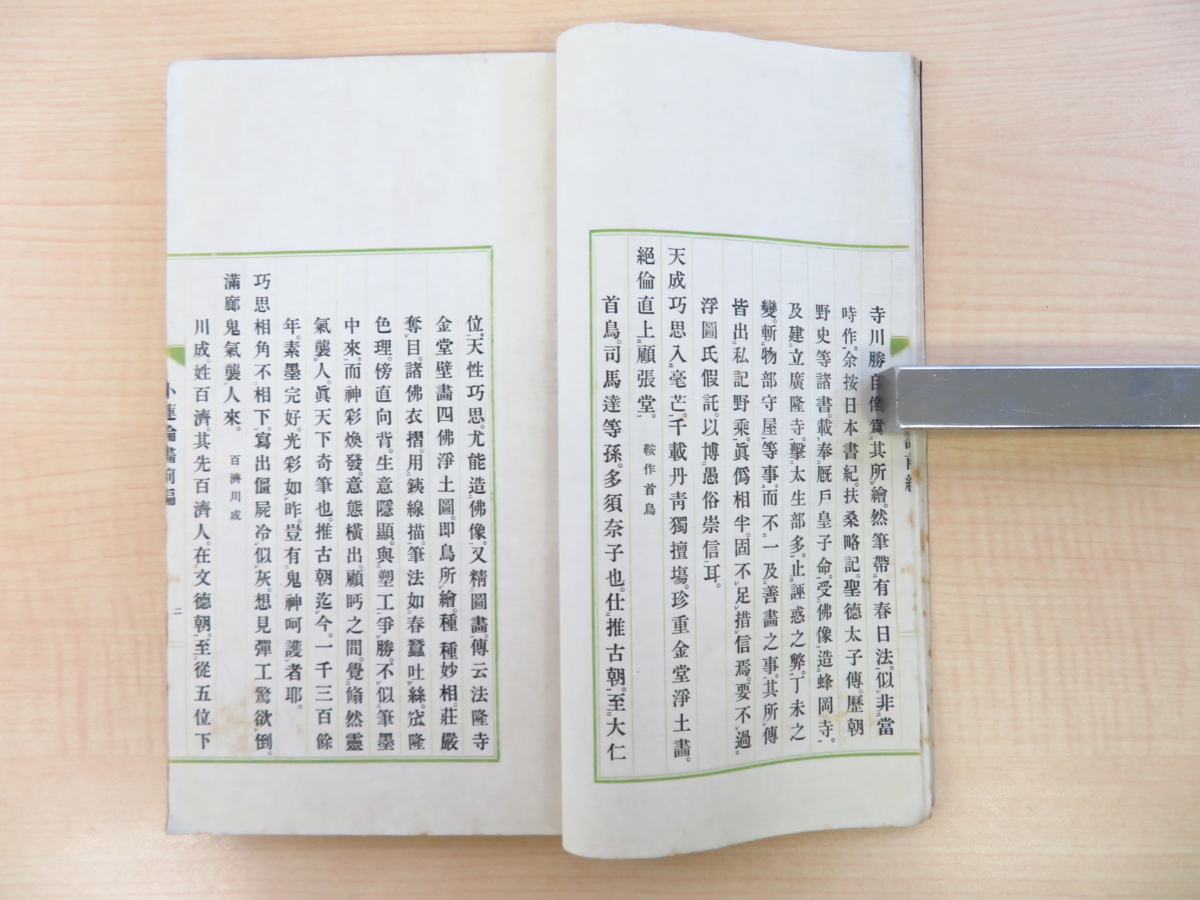 寺川勝自僧賞其所繪。然筆帶有春日法。似非當
時作。余按日本書紀。扶桑略記。聖德太子傳。歷朝
野史等諸書。載奉厩戶皇子命。受佛像。造蜂岡寺。
及建立廣隆寺。擊太生部多。止誣惑之弊。丁未之
變。斬物部守屋等事。而不一及善畫之事。其所傳
皆出私記野乘。眞僞相半。固不足措信焉。要不過
浮圖氏假託。以博愚俗崇信耳。
天成巧思入毫芒。千載丹靑獨擅塲。珍重金堂淨土畵。
絕倫直上顧張堂。 鞍作首鳥
首鳥。司馬達等孫。多須奈子也。仕推古朝。至大仁
位。天性巧思。尤能造佛像。又精圖畫。傳云法隆寺
金堂壁畫四佛淨土圖。即鳥所繪。種種妙相。莊嚴
奪目。諸佛衣摺。用銕線描。筆法如春蠶吐絲。窊隆
色理。傍直向背。生意隱顯。與塑工爭勝。不似筆墨
中來。而神彩煥發。意態橫出。顧眄之間。覺翛然靈
氣襲人。眞天下奇筆也。推古朝迄今。一千三百餘
年。素墨完好。光彩如昨。豈有鬼神呵護者耶。
巧思相角不相下。寫出僵屍冷似灰。想見彈工驚欲倒。
滿廊鬼氣襲人來。 百濟川成
川成。姓百濟。其先百濟人。在文德朝。至從五位下
小蓮論畵前編
二